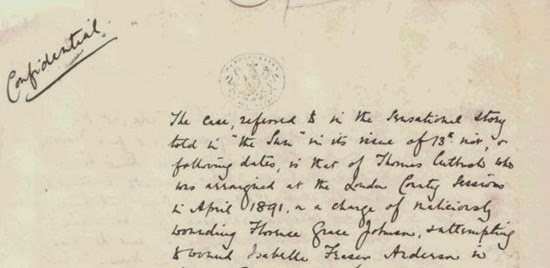 Confidential
The case, referred to in the Sensational story
told in "the Sun" in its issue of 13th inst, &
following dates, is that of Thomas Cutbush who
was arraigned at the London County Sessions
in April 1891, on a charge of maliciously
wounding Florence Grace Johnson, & attempting
to wound Isabelle Fraser Anderson in